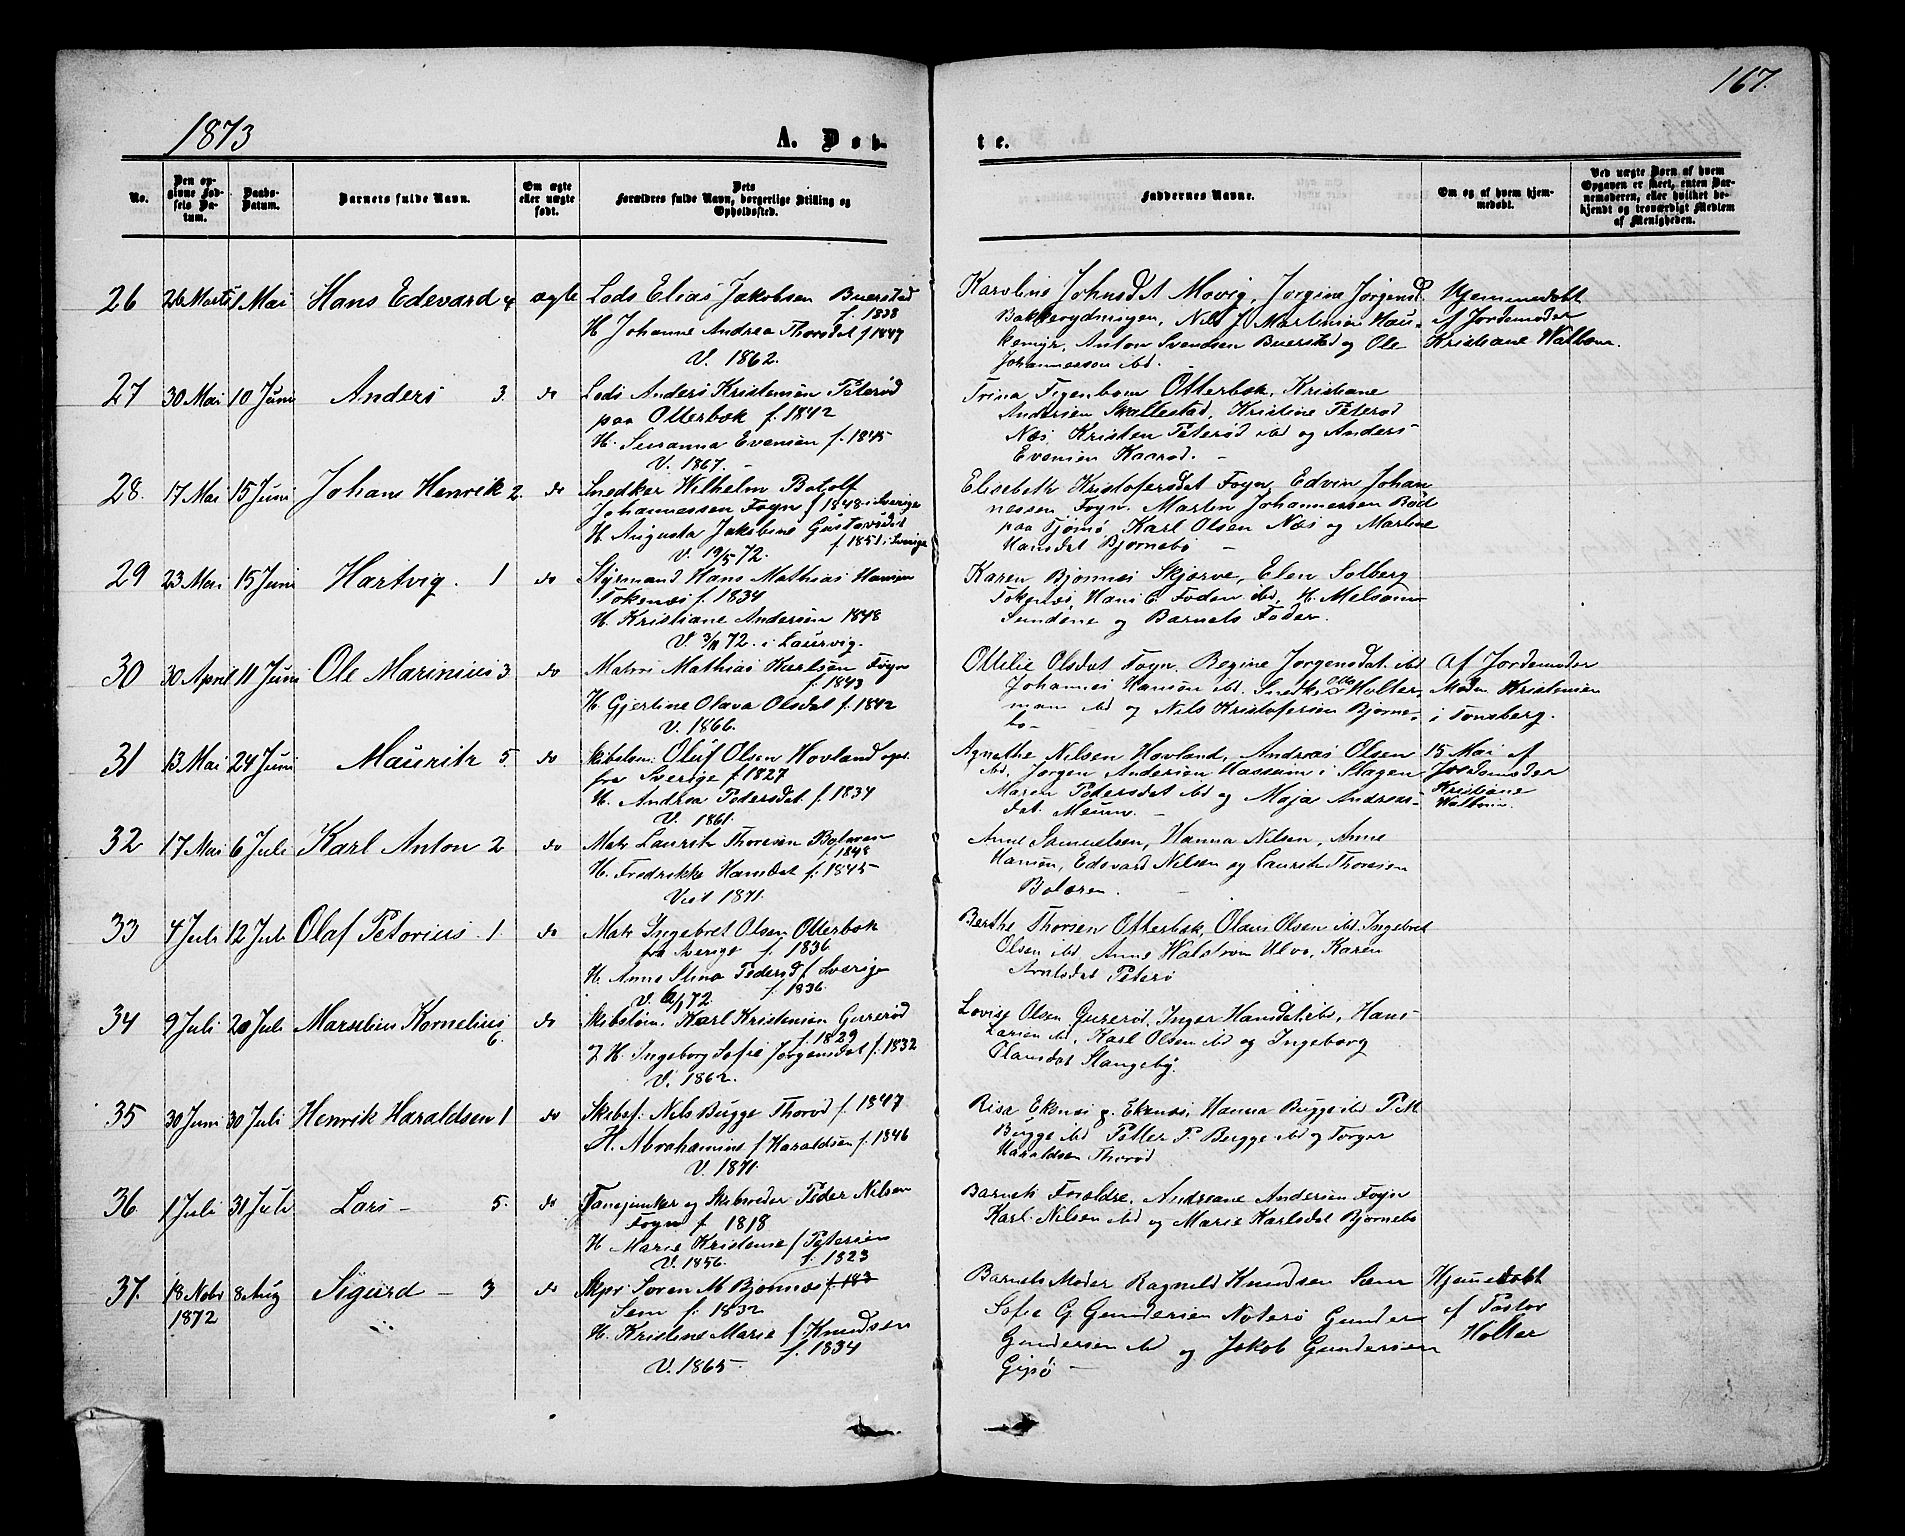 167.
1873
A. Døb-
te.
No.
Den op-
givne Fød-
sels Da-
tum.
Daabs-
Datum.
Barnets fulde Navn.
Om ægte
eller uægte
født.
Dets
Forældres fulde Navn, borgerlige Stilling og
Opholdssted.
Faddernes Navne.
Om og af hvem hjem-
medøbt.
Ved uægte Børn af hvem
Opgaven er skeet, enten Bar-
nemoderen, eller hvilket be-
kjendt og troværdigt Medlem
af Menigheden.
26 26 Marts 1 Mai Hans Edevard 4 ægte Lods Elias Jakobsen Buerstad
f. 1838
H. Johanne Andrea Thorsdat f 1847
V. 1862.
Karoline Johnsdat Movig, Jørgine Jørgensd.
Bakkerydningen, Nils J. Martinsen Hau-
kemyr, Anton Svendsen Buerstad og Ole
Johannessen ibd.
Hjemmedøbt
af Jordemoder
Kristiane Wallum.
27 30 Mai 10 Juni Anders 3. do Lods Anders Kristensen Peterød
paa Otterbæk f. 1842
H. Susanna Evensen f. 1845
V. 1867. -
Trina Figenbom Otterbæk, Kristiane
Andersen Skallestad, Kristine Peterød
Næs, Kristen Peterød ibd og Anders
Evensen Kaarød. -
28. 17 Mai 15 Juni Johans Henrik 2. do Snedker Wilhelm Botolf
Johannessen Føyn f 1848 i Sverige
H. Augusta Jakobine Gustavsdat
f. 1851 i Sverige
V. 19/5 72.
Elisabeth Kristofersdat Føyn, Edvin Johan
nessen Føyn. Martin Johannessen Bød
paa Tjømø, Karl Olsen Næs og Martine
Hansdat Bjørnebo -
29 23 Mai 15 Juni Hartvig. 1 do Styrmand Hans Mathias Hansen
Tokenæs f. 1834
H. Kristiane Andersen 1848
V. 3/11 72. i Laurvig.
Karen Bjønnes Skjerve, Elen Solberg
Tokenæs, Hans C. Foden ibd, H. Melsom
Sundene og Barnets Fader.
30 30 April 11 Juni Ole Marinius 3 do Matros Mathias Karlsen Føyn
f. 1843
H. Gjertine Olava Olsdat f. 1842
V. 1866.
Ottilie Olsdat Føyn, Regine Jørgensdat ibd
Johannes Hansen ibd. Snedk. Otto Holter-
man ibd og Nils Kristofersen Bjørne-
bo -
af Jordemoder
Mad. Kristensen
i Tønsberg.
31 13 Mai 24 Juni Mauritz 5. do Skibstøm. Oluf Olsen Hovland opr.
fra Sverige f. 1827
H. Andrea Pedersdat f. 1834
V. 1861.
Agnethe Nilsen Hovland, Andreas Olsen
ibd, Jørgen Andersen Hassum i Slagen
Maren Pedersdat ibd og Maja Andreas-
dat. Meum. -
15 Mai af
Jordemoder
Kristiane
Wallum.
32 17 Mai 6 Juli Karl Anton 2 do Matr Lauritz Thoresen Bolæren
f. 1848
H. Fredrikke Hansdat f. 1845
Viet 1871.
Anne Samuelsen, Hanna Nilsen, Anne
Hansen, Edevard Nilsen og Lauritz Thoresen
Bolæren. -
33 4 Juli 12 Juli Olaf Petorius. 1 do Matr Ingebret Olsen Otterbæk
fra Sverige f. 1836
H. Anne Stina Pedersd f Sverige
f. 1836
V. 6/1 72.
Berthe Thorsen Otterbæk, Olaus Olsen ibd. Ingebret
Olsen ibd, Anne Walstrøm Ulvø, Karen
Arntsdat Peterø
34 9 Juli 20 Juli Marselius Kornelius 6. do Skibstøm. Karl Kristensen Guserød
f. 1829
2. H. Ingeborg Sofie Jørgensdat f. 1832
V. 1862.
Lovise Olsen Guserød, Inger Hansdat ibd, Hans
Larsen ibd, Karl Olsen ibd og Ingeborg
Olausdat Stangeby.
35 30 Juni 30 Juli Henrik Haraldsen 1 do Skibsf. Nils Bugge Thorød f. 1847
H. Abrahamine f Haraldsen f. 1846
V. 1871.
Risa Ekenæs g. Ekenæs, Hanna Bugge ibd P. M
Bugge ibd Petter P. Bugge ibd og Torger
Haraldsen Thorød
36 1 Juli 31 Juli Lars - 5. do Fanejunker og Skibsreder Peder Nilsen
Føyn f. 1818
H Marie Kristense f Petersen
V. 1856. f. 1823
Barnets Forældre, Andreane Andersen Føyn
Karl Nilsen ibd og Marie Karlsdat Bjørnebo
37. 18 Nobr
1872 8 Aug Sigurd - 3 do Skpr Søren M Bjønnes f. 183
Sem f. 1832
H. Kristine Marie f Knudsen
f. 1834
V. 1865.
Barnets Moder Ragnild Knudsen Sem
Sofie G. Gundersen Nøterø Gunder
Gundersen ibd og Jakob Gundersen
Gipø -
Hjemedøbt
af Pastor
Holter